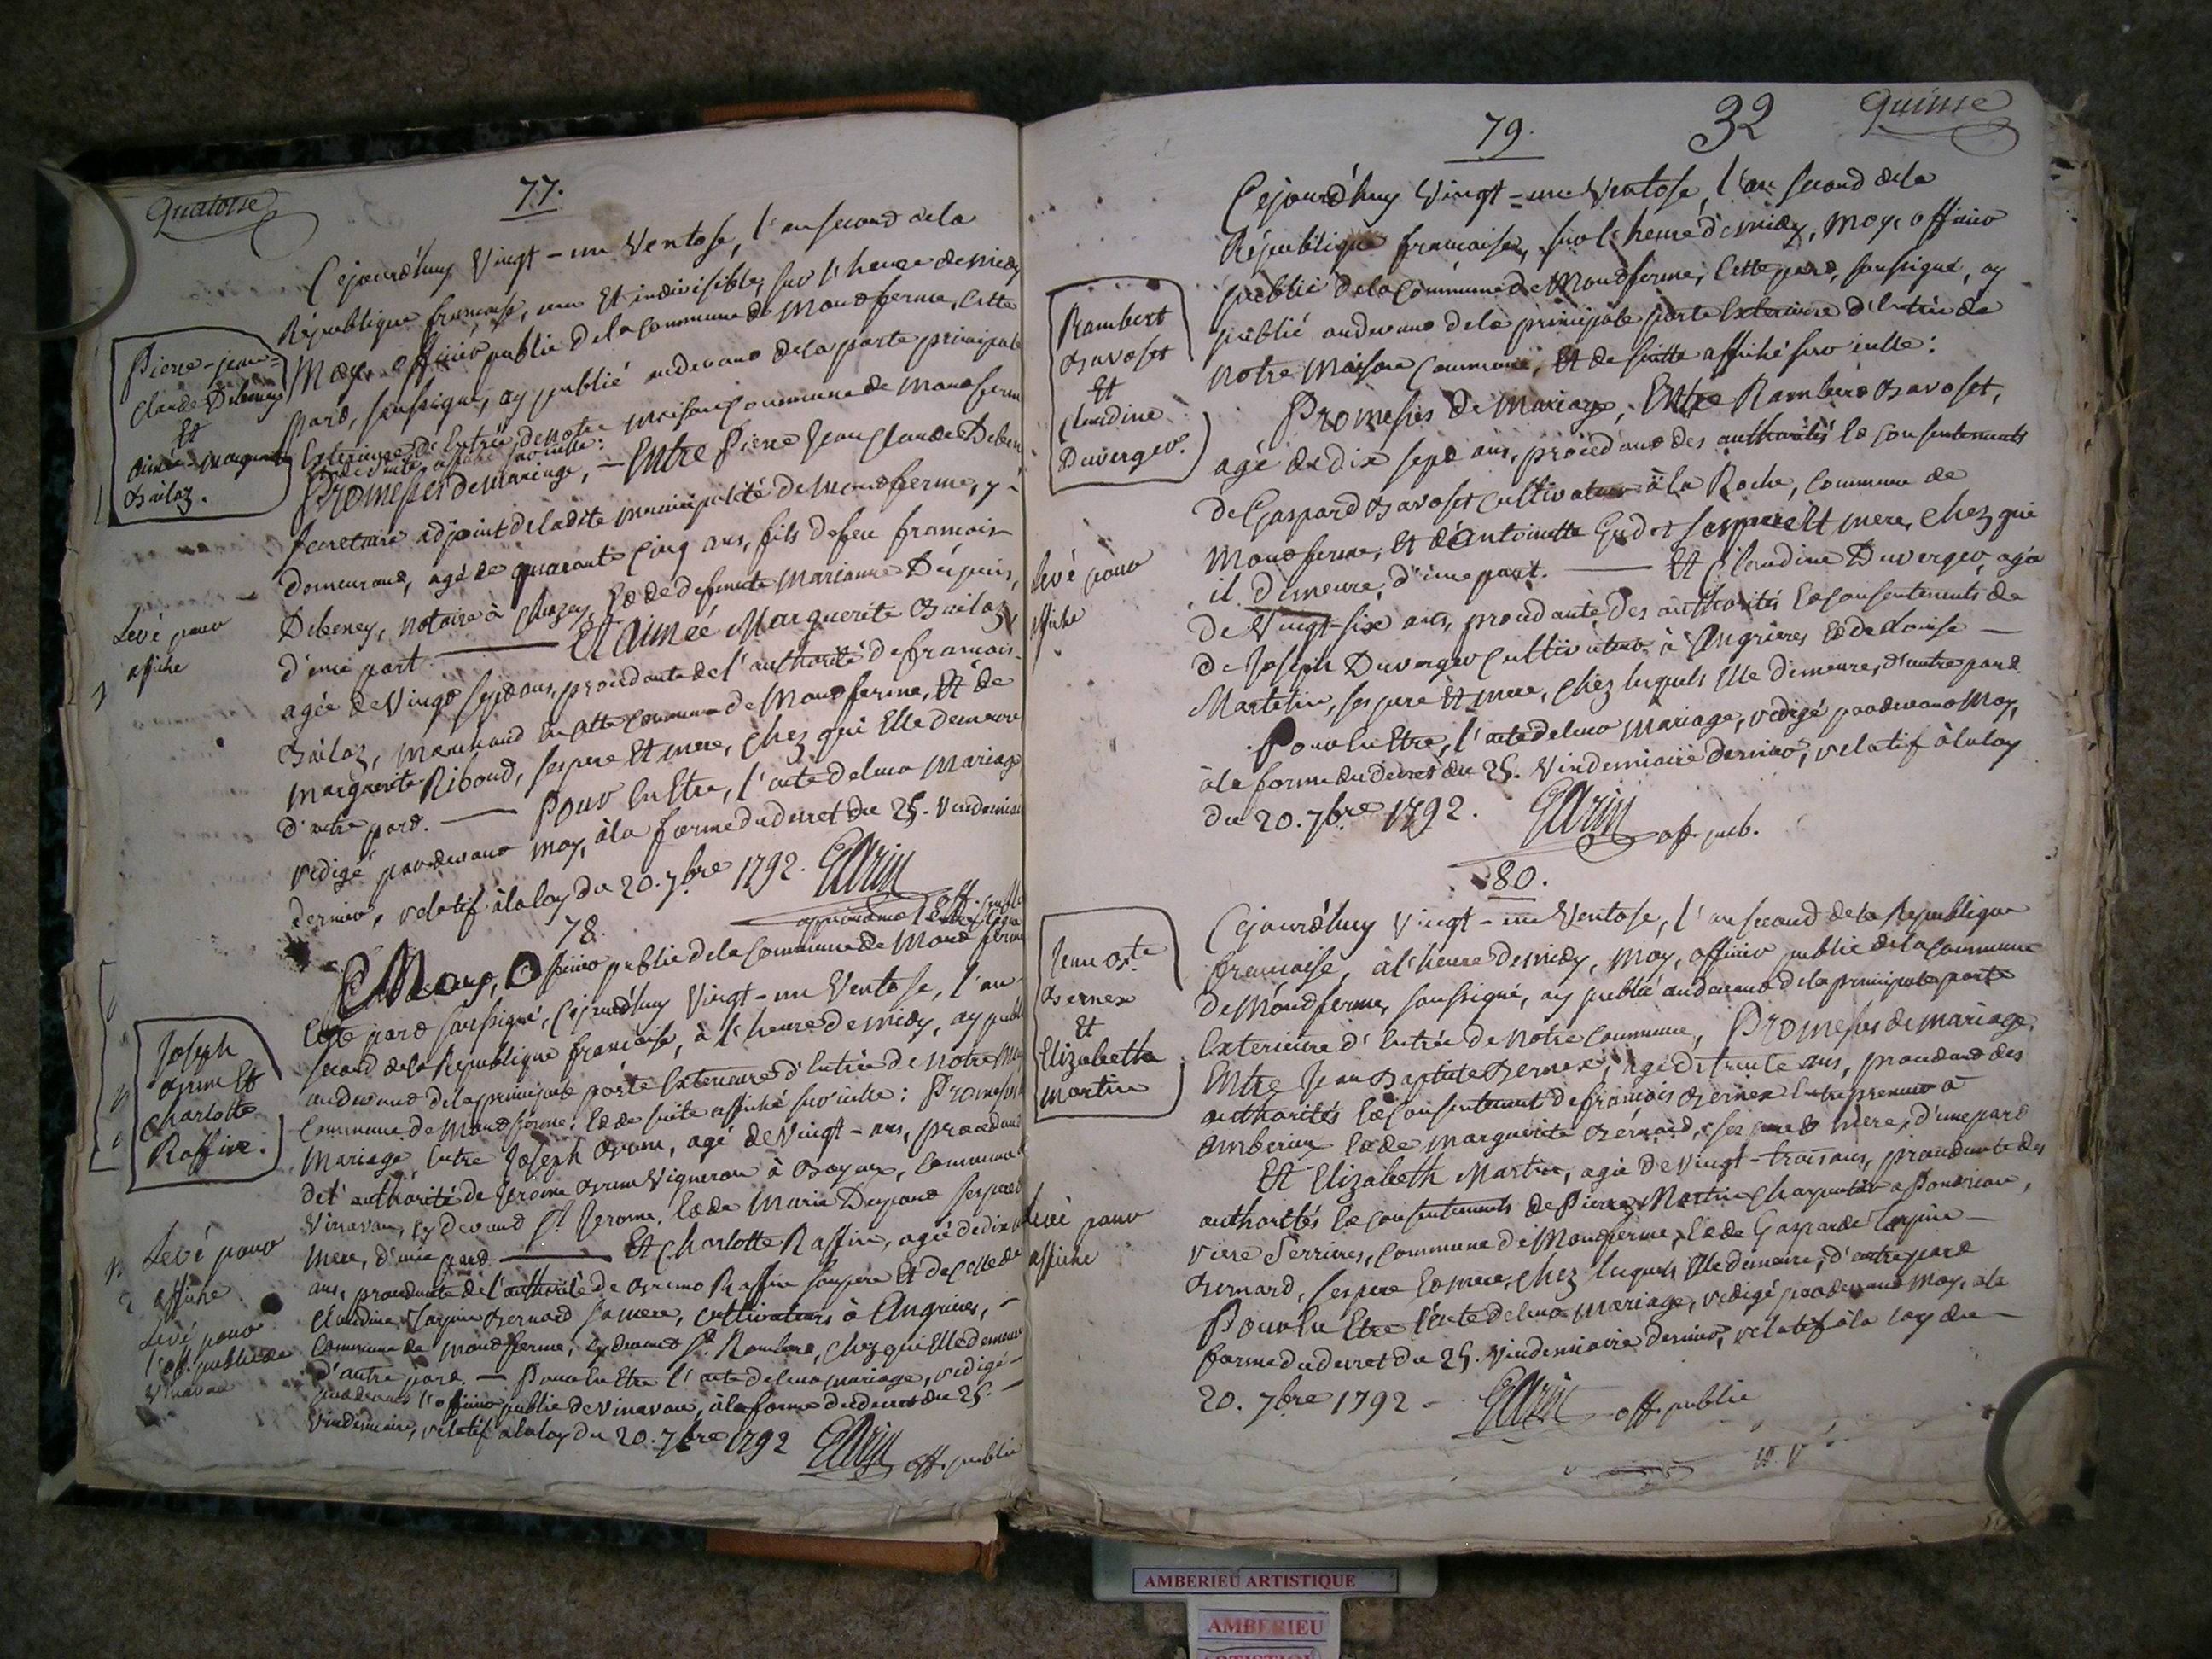 Quatorse
77.
Cejourd'huy Vingt-un Ventose, l'an second de la
République francaise, une Et indivisible, sur l'heure de midy
Moy, officier public de la commune de Montferme, cette
part, soussigné, ay publié audevant de la porte principale
Exterieure d'Entrée de notre maison Commune de montferme
Et de suite affiché sur icelle:
Promesses de mariage, — Entre Pierre Jean Claude Debeney
secretaire adjoint de ladite municipalité de montferme, y
demeurant, agé de quarante cinq ans, fils de feu francois
Debeney, notaire à Chazey, Et de defunte Marianne
d'une part. — Et aimée Marguerite Bailoz,
agée de Vingt sept ans, procedante de l'authorité de francois
Bailoz, marchand En cette commune de Montferme, Et de
marguerite Riboud, ses pere Et mere, chez qui Elle demeure
d'autre part. — Pour En Etre, l'acte de leur mariage
redigé pardevant moy, à la forme du decret du 25. Vindemiaire
dernier, relatif à la loy du 20. 7bre 1792.
Pierre-jean-
Claude Debeney
Et
aimée-marguerite
Bailoz.
Levé pour
affiche
78.
Moy, Officier public de la commune de Montferme
Cette part soussigné, Cejourd'huy Vingt-un Ventose, l'an
second de la République francaise, à l'heure de midy, ay publié
audevant de la principale porte Exterieure d'Entrée de notre
Commune de Montferme; Et de suite affiché sur icelle: Promesses
Mariage, Entre Joseph Brun, agé de Vingt-ans, procedant
de l'authorité de Jerome Brun Vigneron à Boyeux, commune
Vinavan, cy devant St. Jerome, Et de Marie ses pere
mere, d'une part — Et Charlotte Raffin, agée de dix
ans, procedante de l'authorité de Bruno Raffin son pere Et de celle de
Claudine Bernard sa mere, cultivateurs à Angrieres,
Commune de Montferme, cy devant St. Rambert, chez qui Elle demeure
d'autre part. — Pour En Etre l'acte de leur mariage, redigé
pardevant l'officier public de Vinavan, à la forme du decret du 25.
Vindemiaire, relatif à la loy du 20. 7bre 1792
off. public
Joseph
Brun Et
Charlotte
Raffin.
Levé pour
affiche
Levé pour
l'off. public de
Vinavan
79.
32
Quinse
Cejourd'huy Vingt-un Ventose, l'an second de la
République francaise, sur l'heure de midy, moy, officier
public de la commune de Montferme, Cette part, soussigné, ay
publié audevant de la principale porte Exterieure d'Entrée de
notre Maison Commune, Et de suitte affiché sur icelle:
Promesses de Mariage, Entre Rambert Bavoset,
agé de dix sept ans, procedant des authorités Et consentements
de Gaspard Bavoset cultivateur à la Roche, commune de
Montferme, Et d'Antoinette ses pere Et mere, chez qui
il demeure, d'une part. — Et Claudine Duverger, agée
de Vingt-six ans, procedante des authorités Et consentements de
de Joseph Duverger cultivateur à Angrieres Et de Louise
Martelin, ses pere Et mere, chez lesquels Elle demeure, d'autre part
Pour En Etre, l'acte de leur mariage, redigé pardevant Moy,
à la forme du decret du 25. Vindemiaire dernier, relatif à la loy
du 20. 7bre 1792.
off. pub.
Rambert
Bavoset
Et
Claudine
Duverger.
Levé pour
affiche
80.
Cejourd'huy Vingt-un Ventose, l'an second de la République
francaise, à l'heure de midy, moy, officier public de la commune
de Montferme, soussigné, ay publié audevant de la principale porte
Exterieure d'Entrée de notre commune, Promesses de mariage,
Entre Jean Baptiste Bernex, agé de trente ans, procedant des
authorités Et consentement de francois Bernex Entrepreneur à
Amberieux Et de marguerite Bernard, ses pere Et mere, d'une part
Et Elizabeth Martin, agée de Vingt-trois ans, procedante des
authorités Et consentements de Pierre Martin Charpentier
Serrieres, commune de Montferme, Et de Gasparde
Bernard, ses pere Et mere, chez lesquels Elle demeure, d'autre part
Pour En Etre l'acte de leur mariage, redigé pardevant moy, à la
forme du decret du 25. Vindemiaire dernier, relatif à la loy du
20. 7bre 1792 -
off. public
Jean Bte
Bernex
Et
Elizabeth
martin
Levé pour
affiche
AMBERIEU ARTISTIQUE
AMBERIEU
ARTISTIQUE